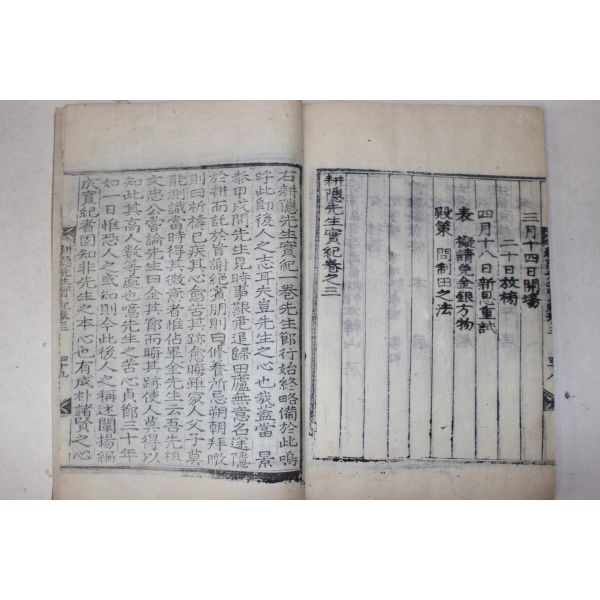 三月十四日開場
二十日放榜
四月十八日新恩重試
表 擬請免金銀方物
殿策 問制田之法
耕隱先生實紀卷之三
右耕隱先生實紀一卷先生節行始終略備於此嗚
呼此卽後人之志耳夫豈先生之心也哉蓋當 景
泰甲戌間先生見時事艱危退歸田廬無意名途隱
於耕而託於盲謝絶賓朋則曰修養所忌朔朝拜
則曰祈禱已疾其心愈苦其跡愈晦雖家人父子莫
能測識當時得其微意者惟佔畢金先生云吾先祖
文忠公嘗論先生曰全其節而晦其跡使人莫得以
知此其高人數等處也噫先生之苦心貞節三十年
如一日惟恐人之或知則今此後人之稱述闡揚編
成實紀者固知非先生之本心也有成朴諸賢之心